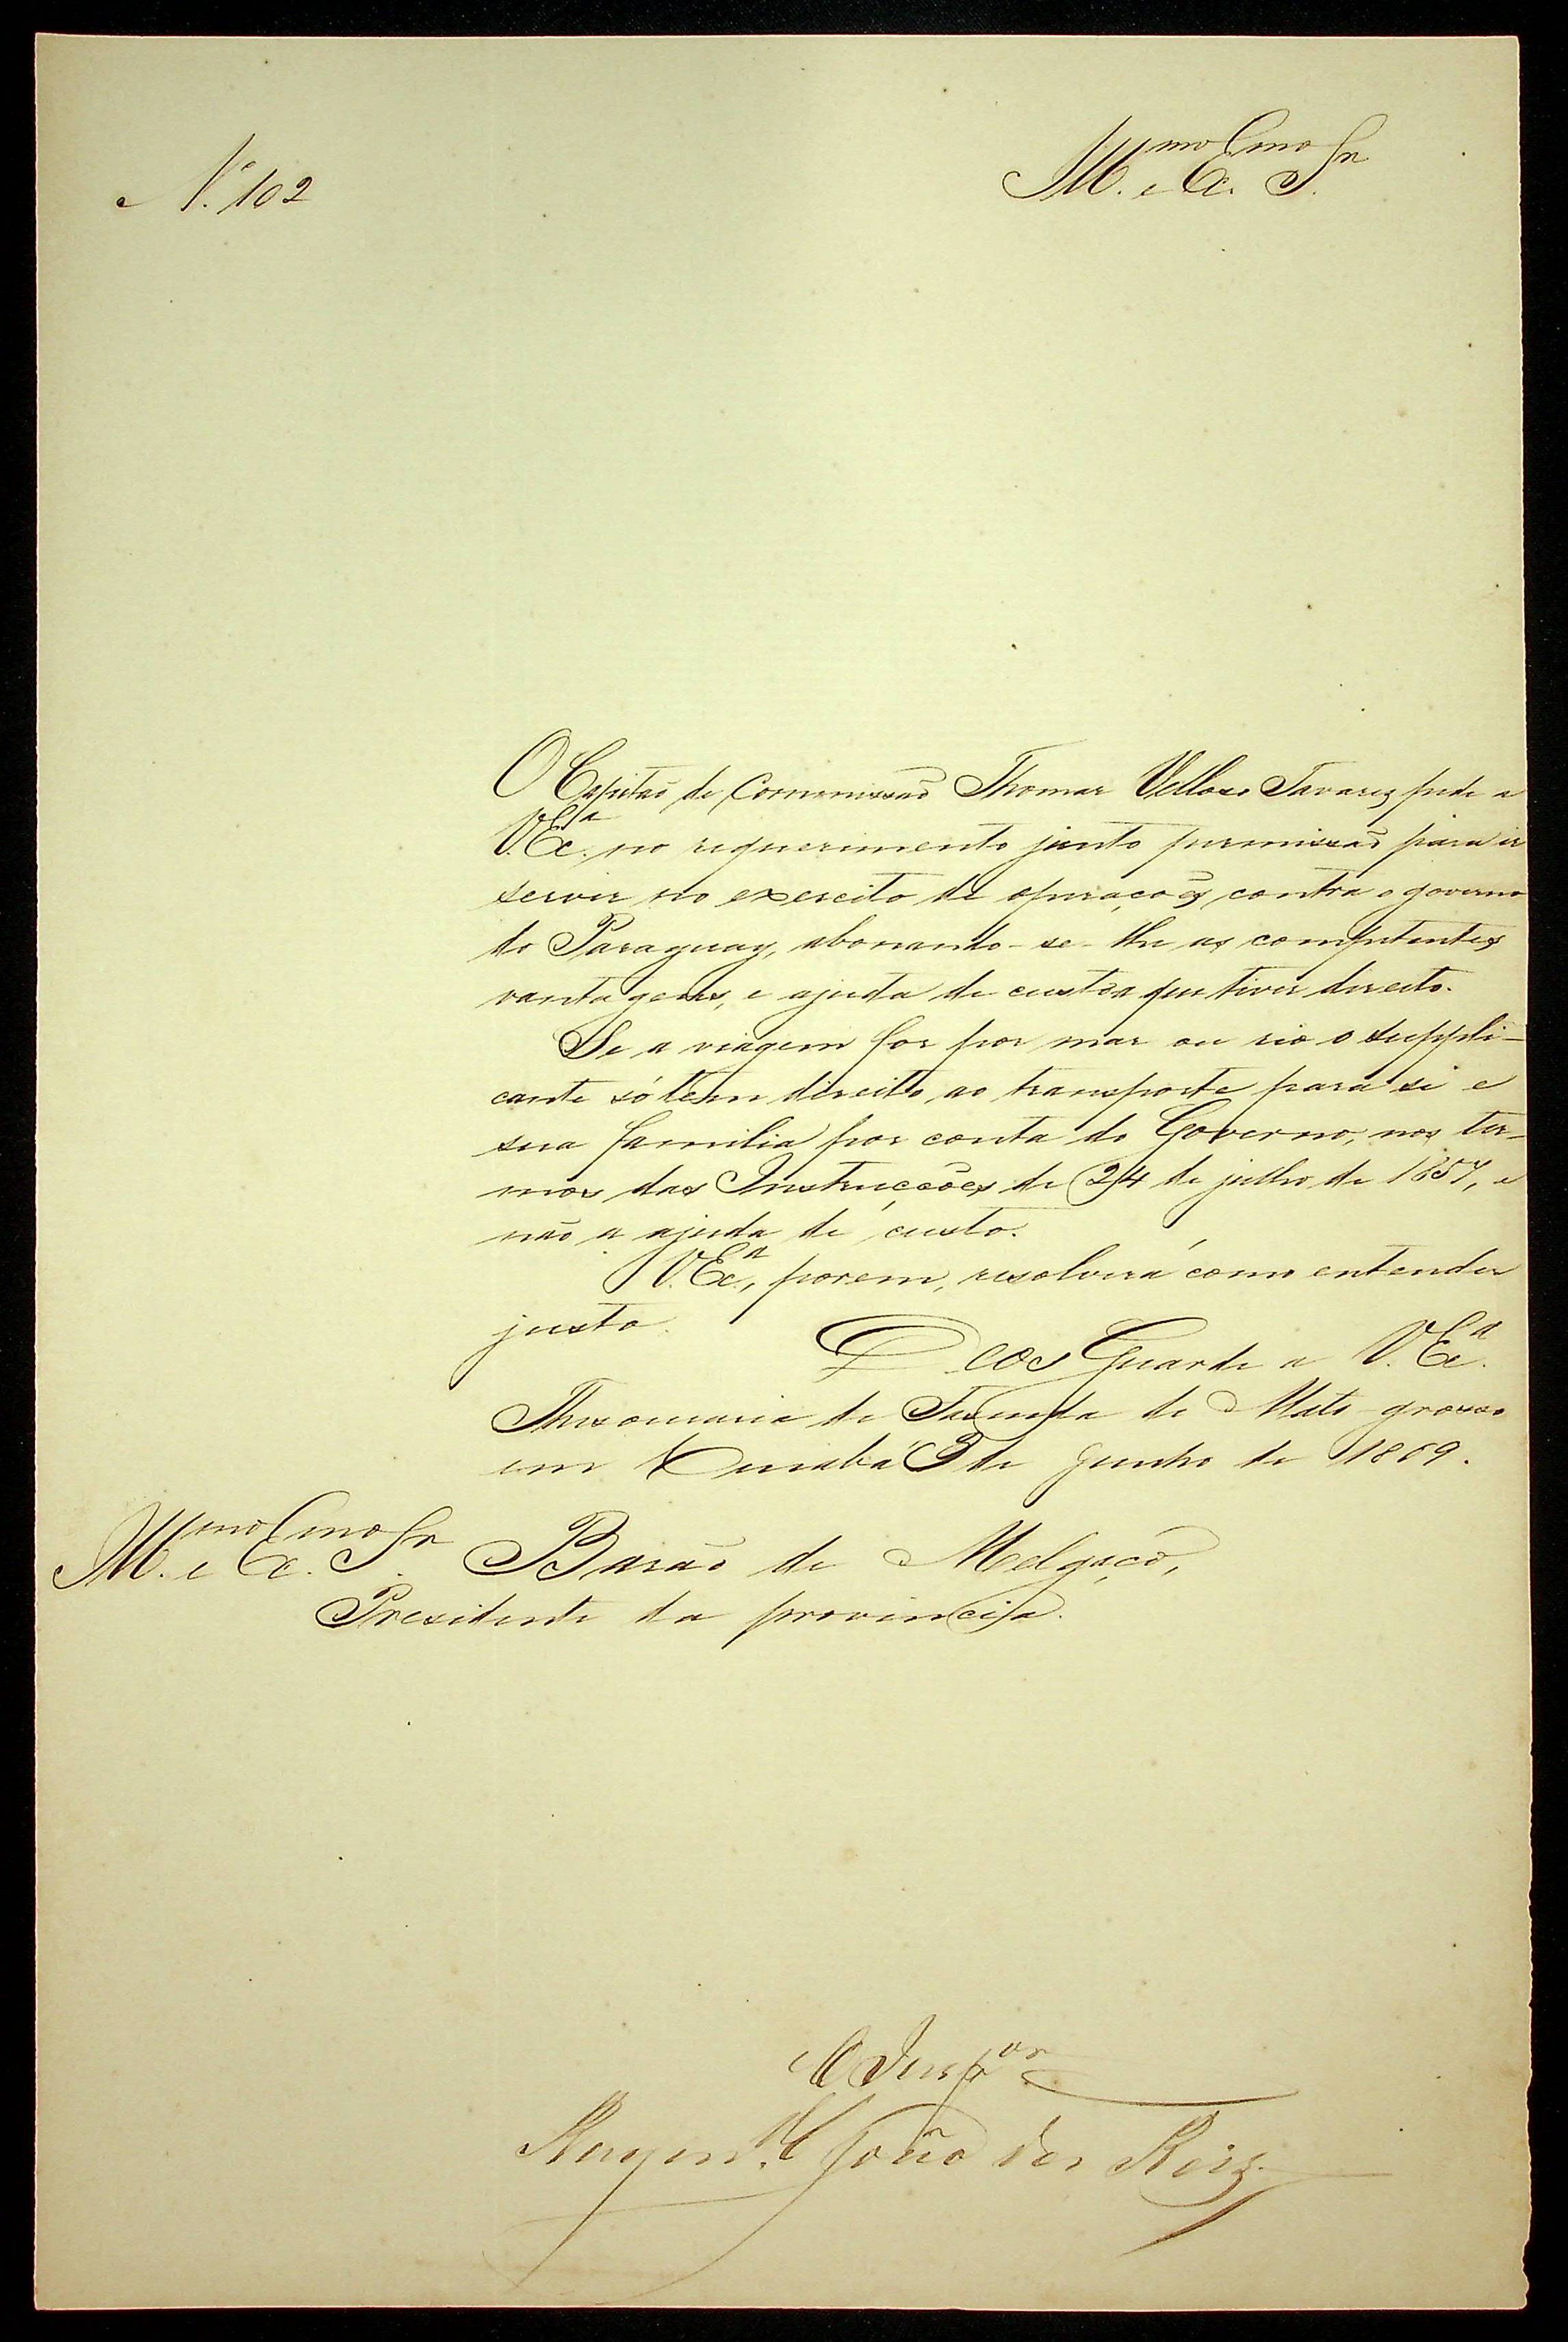 N.º 102
Ill.mo e Ex.mo Sn.r
O Capitaõ de Commissaõ Thomaz Vellozo Tavares pede a
V. Ex.a no requerimento junto permissaõ para ir
servir no exercito de operaçoẽs contra o governo
do Paraguay, abonando-se-lhe as competentes
vantagens, e ajuda de custo a que tiver direito.
Se a viagem for por mar ou rio o suppli-
cante só tem direito ao transporte para si e
sua familia por conta do Governo, nos ter-
mos das Instrucçoẽs de 24 de julho de 1857, e
não a ajuda de custo.
V. Ex.a, porem, resolverá como entender
justo.
Deos Guarde a V. Ex.a
Thesouraria de Fasenda de Mato-grosso
em Cuiabá 3 de Junho de 1869.
Ill.mo e Ex.mo Sn.r Barão de Melgaço,
Presidente da provincia.
O Insp.or
João dos Reis